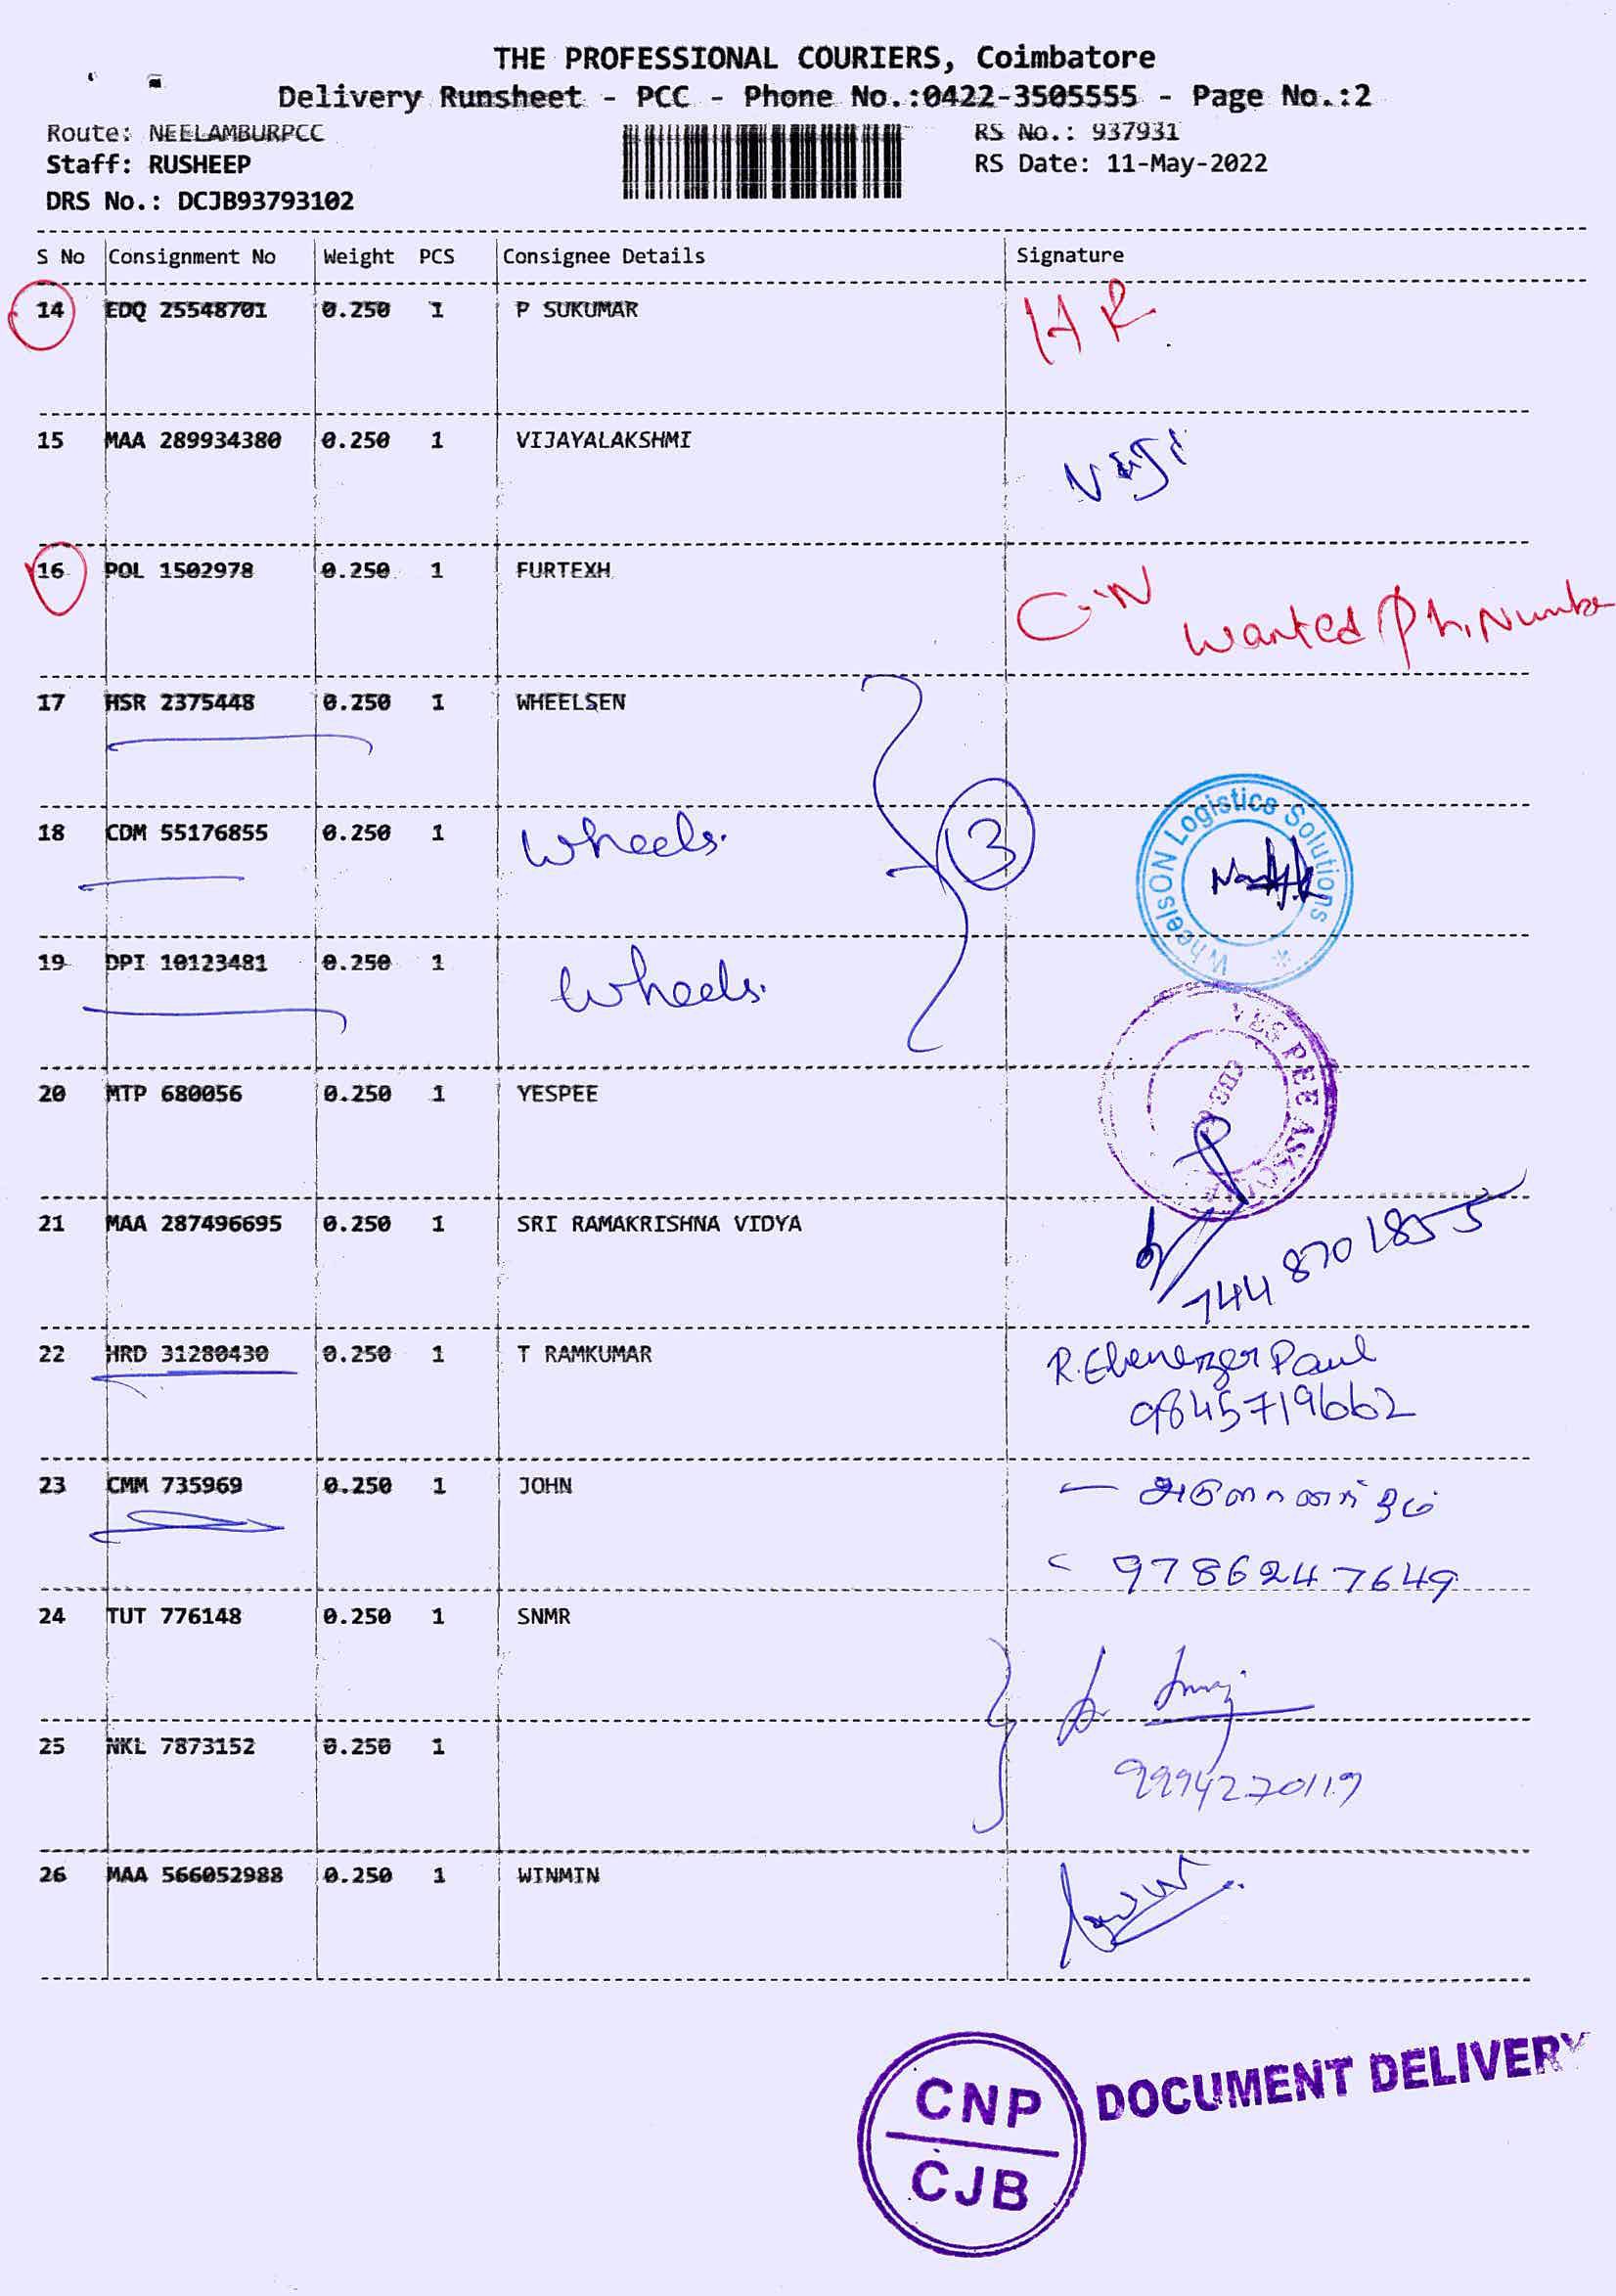 THE PROFESSIONAL COURIERS, Coimbatore
Delivery Runsheet - PCC - Phone No.:0422-3505555 - Page No.:2
Route: NEELAMBURPCC RS No.: 937931
Staff: RUSHEEP RS Date: 11-May-2022
DRS No.: DCJB93793102
S No Consignment No Weight PCS Consignee Details Signature
14 EDQ 25548701 0.250 1 P SUKUMAR
15 MAA 289934380 0.250 1 VIJAYALAKSHMI
Viji
16 POL 1502978 0.250 1 FURTEXH
Wanted Ph. Number
17 HSR 2375448 0.250 1 WHEELSEN
18 CDM 55176855 0.250 1 Wheels. 3
WheelsON Logistics Solutions *
19 DPI 10123481 0.250 1 Wheels.
20 MTP 680056 0.250 1 YESPEE
YES PEE
21 MAA 287496695 0.250 1 SRI RAMAKRISHNA VIDYA
8701855
22 HRD 31280430 0.250 1 T RAMKUMAR R. Ebenezer Paul
9845719662
23 CMM 735969 0.250 1 JOHN
9786247649
24 TUT 776148 0.250 1 SNMR
25 NKL 7873152 0.250 1
9994270119
26 MAA 566052988 0.250 1 WINMIN
CNP
CJB
DOCUMENT DELIVERY